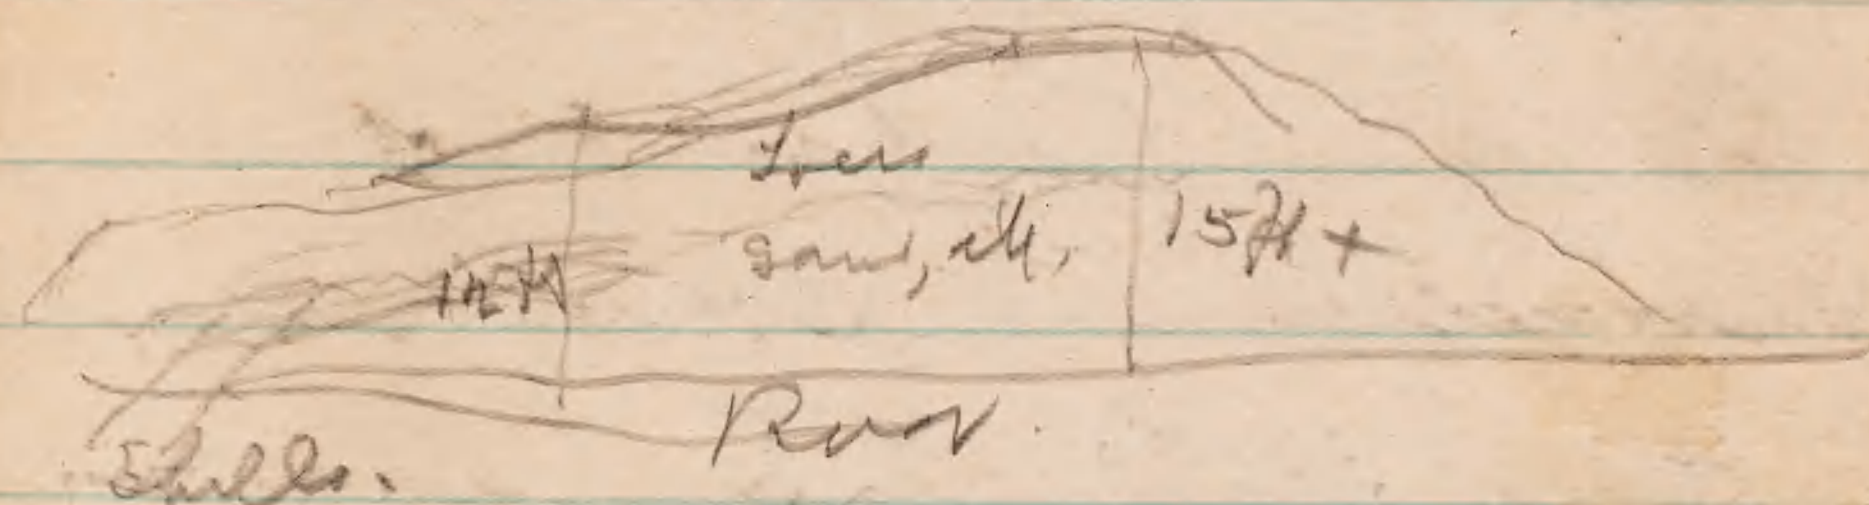 Loess
Sand, etc,
15 ft +
12 ft
Road.
Shells.